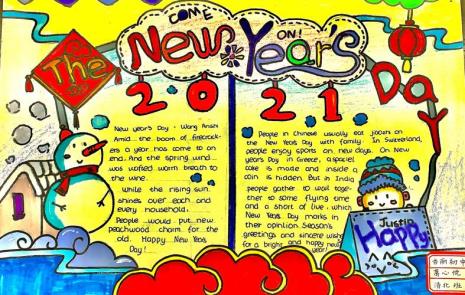 COME
ON!
The
New Year's
Day
2021
New year's Day - Wang Anshi
Amid the boom of firecrack-
ers a year has come to an
end. And the spring wind
was wafted warm breath to
the wine.
While the rising sun
shines over each and
every household,
People would put new
peachwood charm for the
old. Happy New Years
Day!
People in Chinese usually eat jiaozi on
the New Years Day with family. In Switzerland,
people enjoy sports on new days. On New
years Day in Greece, a special
cake is made and inside a
coin is hidden. But in India
people gather to wait toge-
ther to some flying time
and a short of live, which
New Years Day marks in
their opinion. Season's
greetings and sincere wishes
for a bright and happy new
year!
Justin
Happy!